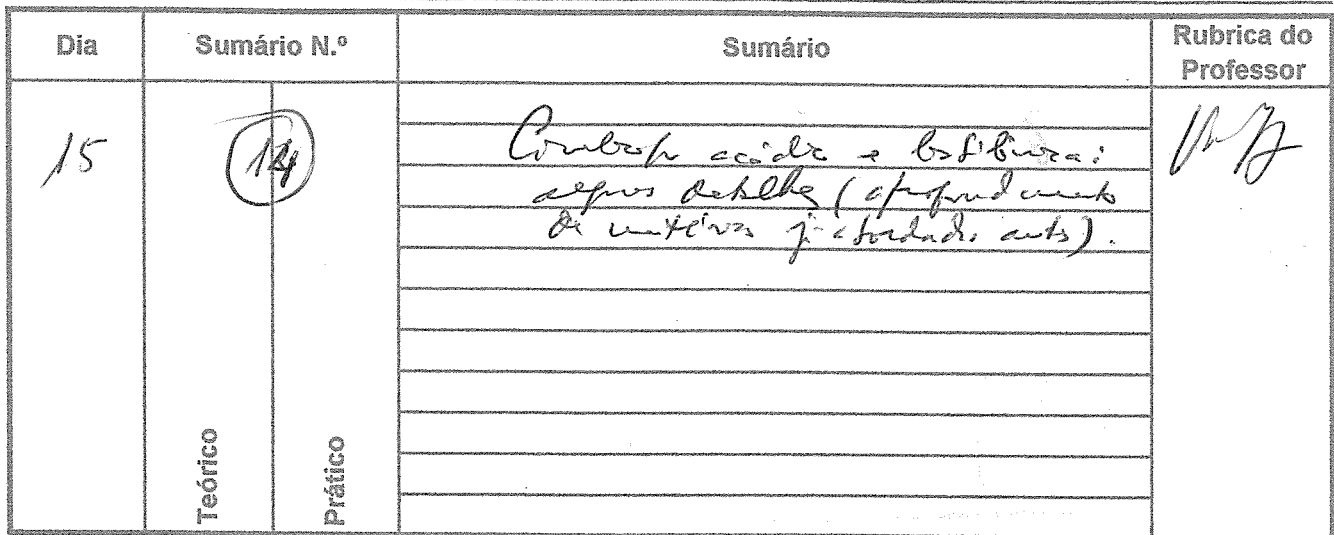 Dia Sumário N.º Sumário Rubrica do Professor
15 14
acida e
alguns detalhes (aprofundamento
de matérias já abordadas antes).
Teórico
Prático